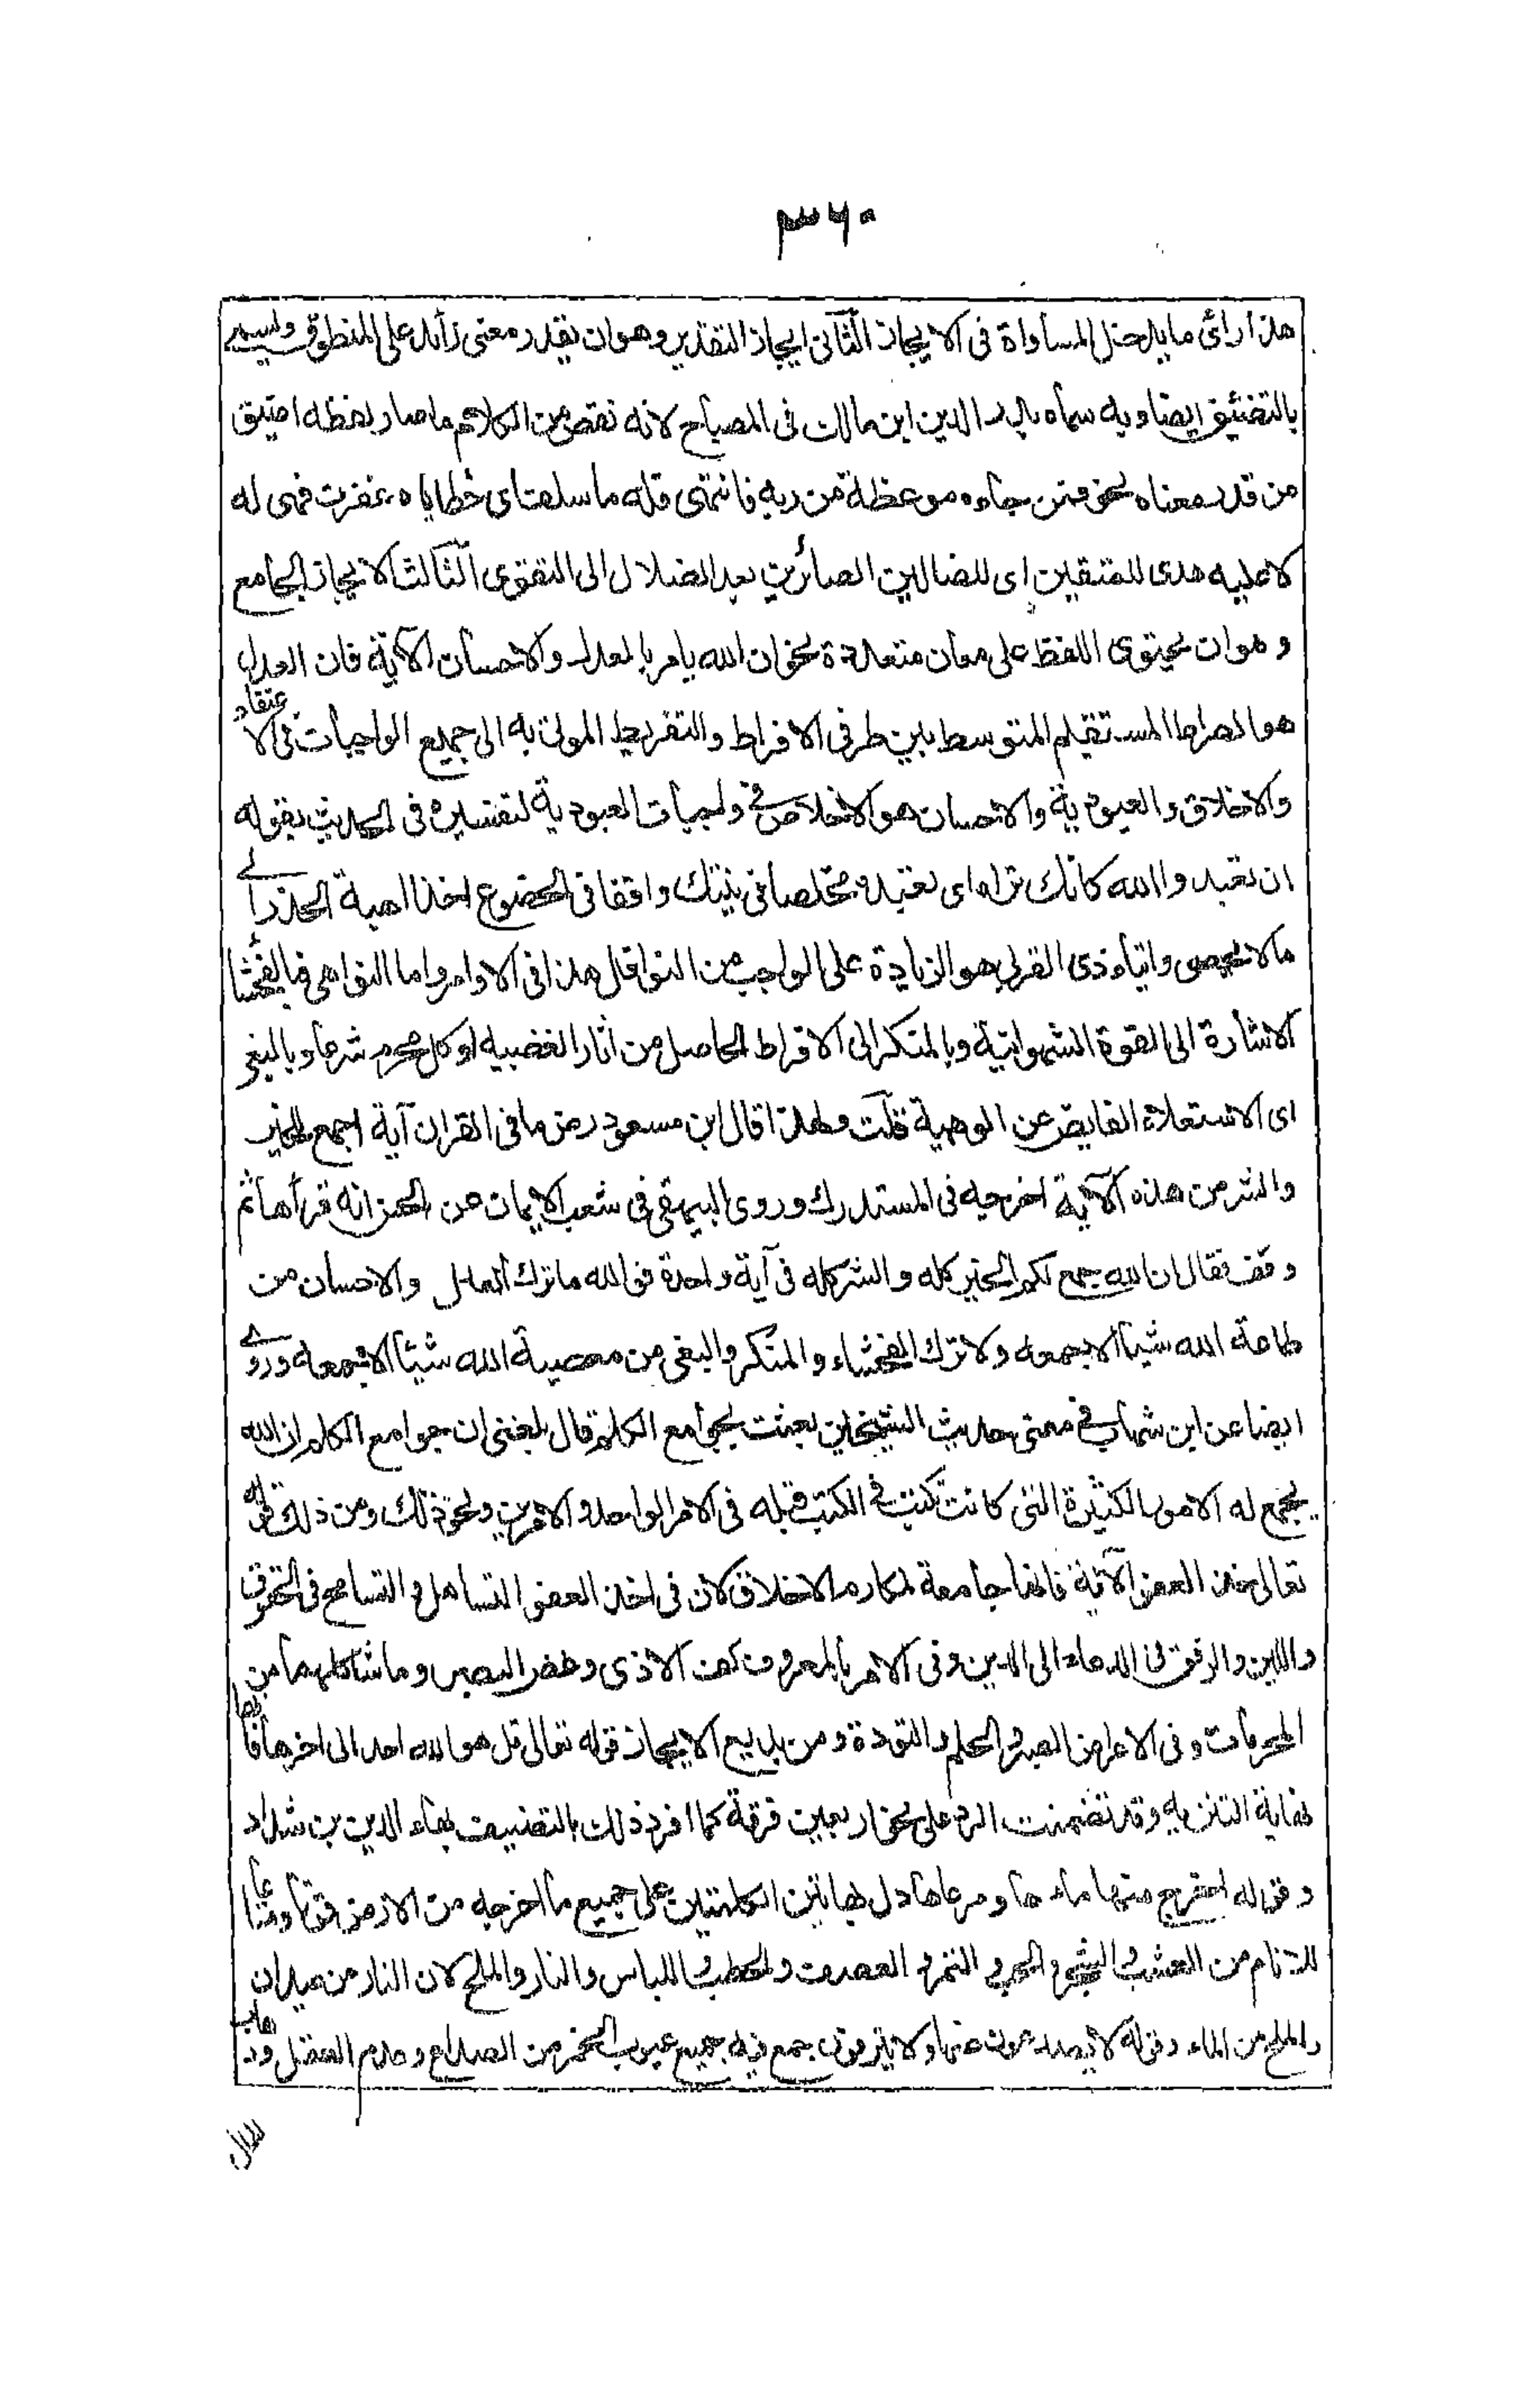 ٣٦٠
هذا رأى ما يدخل المساواة فى الايجاز الثانى ايجاز التقدير وهو ان يقدر معنى زائد على المنطوق ويسمى
بالتضييق ايضا وبه سماه بدر الدين ابن مالك فى المصباح لانه نقص من الكلام ما صار لفظه اضيق
من قدر معناه نحو فمن جاءه موعظة من ربه فانتهى فله ما سلف اى خطاياه غفرت فهى له
لا عليه هدى للمتقين اى للضالين الصائرين بعد الضلال الى التقوى الثالث الايجاز الجامع
وهو ان يحتوى اللفظ على معان متعددة نحو ان الله يامر بالعدل والاحسان الآية فان العدل
هو الصراط المستقيم المتوسط بين طرفى الافراط والتفريط المولى به الى جميع الواجبات فى الاعتقاد
والاخلاق والعبودية والاحسان هو الاخلاص فى واجبات العبودية لتفسيره فى الحديث بقوله
ان تعبدوا الله كانك تراه اى تعبده مخلصا فى نيتك واقفا فى الخضوع اخذا اهبة الحذر الى
مالا يحصى وايتاء ذى القربى هو الزيادة على الواجب من النوافل هذا فى الاوامر واما النواهى فبالفحشا
الاشارة الى القوة الشهوانية وبالمنكر الى الافراط الحاصل من اثار الغضبيه او كل محرم شرعا وبالبغى
اى الاستعلاء الفايض عن الوهمية قلت ولهذا قال ابن مسعود رض ما فى القران آية اجمع للخير
والشر من هذه الآية اخرجه فى المستدرك وروى البيهقى فى شعب الايمان عن الحسن انه قرأها ثم
وقف فقال ان الله جمع لكم الخير كله والشر كله فى آية واحدة فوالله ما ترك العدل والاحسان من
طاعة الله شيئا الا جمعه ولا ترك الفحشاء والمنكر والبغى من معصية الله شيئا الا جمعه وروى
ايضا عن ابن شهاب فى معنى حديث الشيخين بعثت بجوامع الكلم قال بلغنى ان جوامع الكلم ان الله
يجمع له الامور الكثيرة التى كانت تكتب فى الكتب قبله فى الامر الواحد والامرين ونحو ذلك ومن ذلك قوله
تعالى خذ العفو الآية فانها جامعة لمكارم الاخلاق لان فى اخذ العفو التساهل والتسامح فى الحقوق
واللين والرفق فى الدعاء الى الدين وفى الامر بالمعروف كف الاذى وغض البصر وما شاكلهما من
المحرمات وفى الاعراض الصبر والحلم والتؤدة ومن بديع الايجاز قوله تعالى قل هو الله احد الى اخرها فانها
نهاية التنزيه وقد تضمنت الرد على نحو اربعين فرقة كما افرد ذلك بالتصنيف بهاء الدين بن شداد
وقوله اخرج منها ماءها ومرعاها دل بهاتين الكلمتين على جميع ما اخرجه من الارض قوتا ومتاعا
للانام من العشب والشجر والحب والتمر والعصف والحطب واللباس والنار والملح لان النار من عيدان
والملح من الماء وقوله لا يصدعون عنها ولا ينزفون جمع فيه جميع عيوب الخمر من الصداع وعدم العقل وذهاب